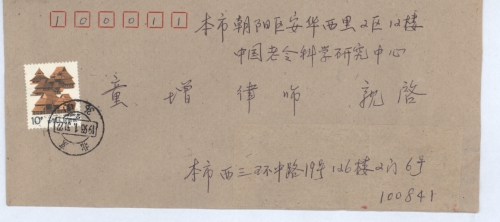 100011
本市朝阳区安华西里2区12楼
中国老令科学研究中心
童增 律师 亲启
10分
北京
本市西三环中路19号126楼2门6号
100841